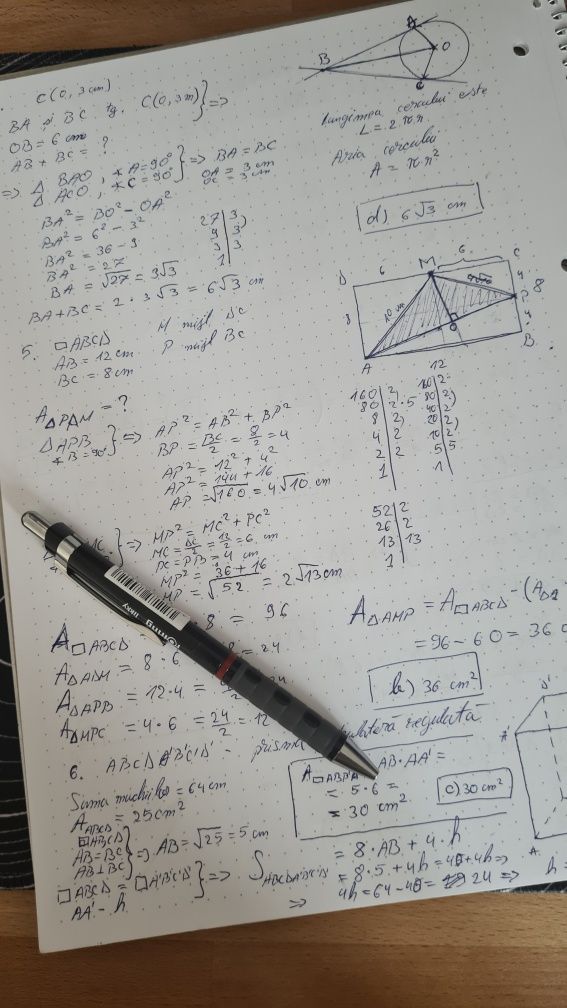 C(O, 3 cm)
BA și BC tg. C(O, 3m) } =>
OB = 6 cm
AB + BC = ?
=> Δ BAO, ∢A = 90°
Δ BCO, ∢C = 90° } => BA = BC
OA = 3 cm
OC = 3 cm
BA² = BO² - OA²
BA² = 6² - 3²
BA² = 36 - 9
BA² = 27
BA = √27 = 3√3
BA + BC = 2 · 3√3 = 6√3 cm
27 | 3
9 | 3
3 | 3
1
A
B
O
C
Lungimea cercului este
L = 2πr
Aria cercului
A = πr²
d) 6√3 cm
5. □ABCD
AB = 12 cm
BC = 8 cm
M mijl DC
P mijl BC
D 6 M 6 C
8
4
P 8
4
A
B
12
A ΔPAM = ?
Δ APB
∢B = 90° } => AP² = AB² + BP²
BP = BC/2 = 8/2 = 4
AP² = 12² + 4²
AP² = 144 + 16
AP = √160 = 4√10 cm
160 | 2
80 | 2·5
8 | 2
4 | 2
2 | 2
1
160 | 2
80 | 2
40 | 2
20 | 2
10 | 2
5 | 5
1
MC. } => MP² = MC² + PC²
MC = DC/2 = 12/2 = 6 cm
PC = PB = 4 cm
MP² = 36 + 16
MP = √52 = 2√13 cm
52 | 2
26 | 2
13 | 13
1
A □ABCD
8 = 96
A ΔADM = 8 · 6
= 24
A ΔAPB = 12 · 4 =
24
A ΔMPC = 4 · 6 = 24/2 = 12
A ΔAMP = A □ABCD - (A
= 96 - 60 = 36 c
b) 36 cm²
rOtring
Tikky
6. ABCDA'B'C'D' - prismă patrulateră regulată
Suma muchiilor = 64 cm
A ABCD = 25 cm²
□ABCD
AB = BC
AB ⊥ BC } => AB = √25 = 5 cm
□ABCD = □A'B'C'D'
AA' = h } => S ABCDA'B'C'D' = 8 · AB + 4 · h
= 8 · 5 + 4h = 40 + 4h =>
=> 4h = 64 - 40 = 24 => h =
A □ABB'A' = AB · AA' =
= 5 · 6 =
= 30 cm²
c) 30 cm²
D'
A'
A